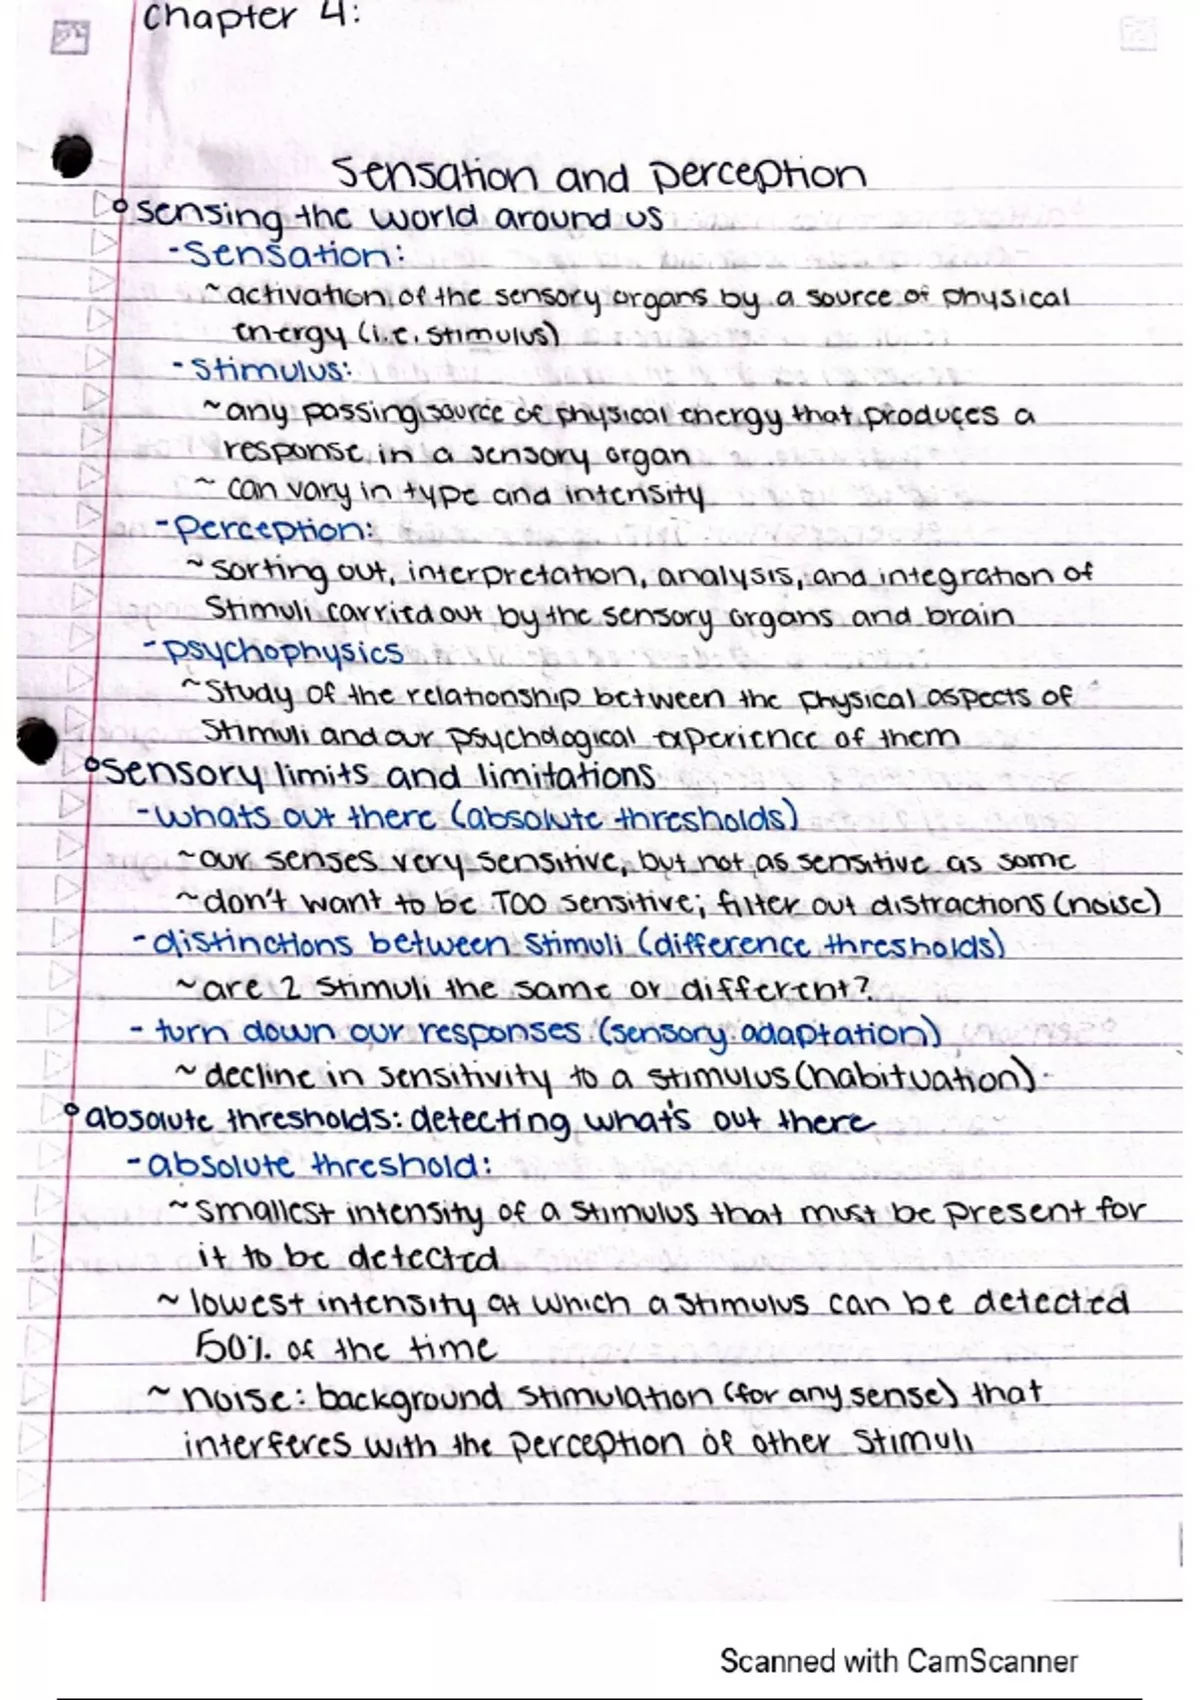 chapter 4:
Sensation and perception
° sensing the world around us
- Sensation:
~ activation of the sensory organs by a source of physical
energy (i.e. stimulus)
- Stimulus:
~ any passing source of physical energy that produces a
response in a sensory organ
~ can vary in type and intensity
- Perception:
~ sorting out, interpretation, analysis, and integration of
Stimuli carried out by the sensory organs and brain
- psychophysics
~ Study of the relationship between the physical aspects of
Stimuli and our psychological experience of them
° sensory limits and limitations
- whats out there (absolute thresholds)
~ our senses very sensitive, but not as sensitive as some
~ don't want to be TOO sensitive; filter out distractions (noise)
- distinctions between Stimuli (difference thresholds)
~ are 2 Stimuli the same or different?
- turn down our responses (sensory adaptation)
~ decline in sensitivity to a stimulus (habituation)
° absolute thresholds: detecting what's out there
- absolute threshold:
~ smallest intensity of a stimulus that must be present for
it to be detected
~ lowest intensity at which a stimulus can be detected
50% of the time
~ noise: background stimulation (for any sense) that
interferes with the perception of other stimuli
Scanned with CamScanner